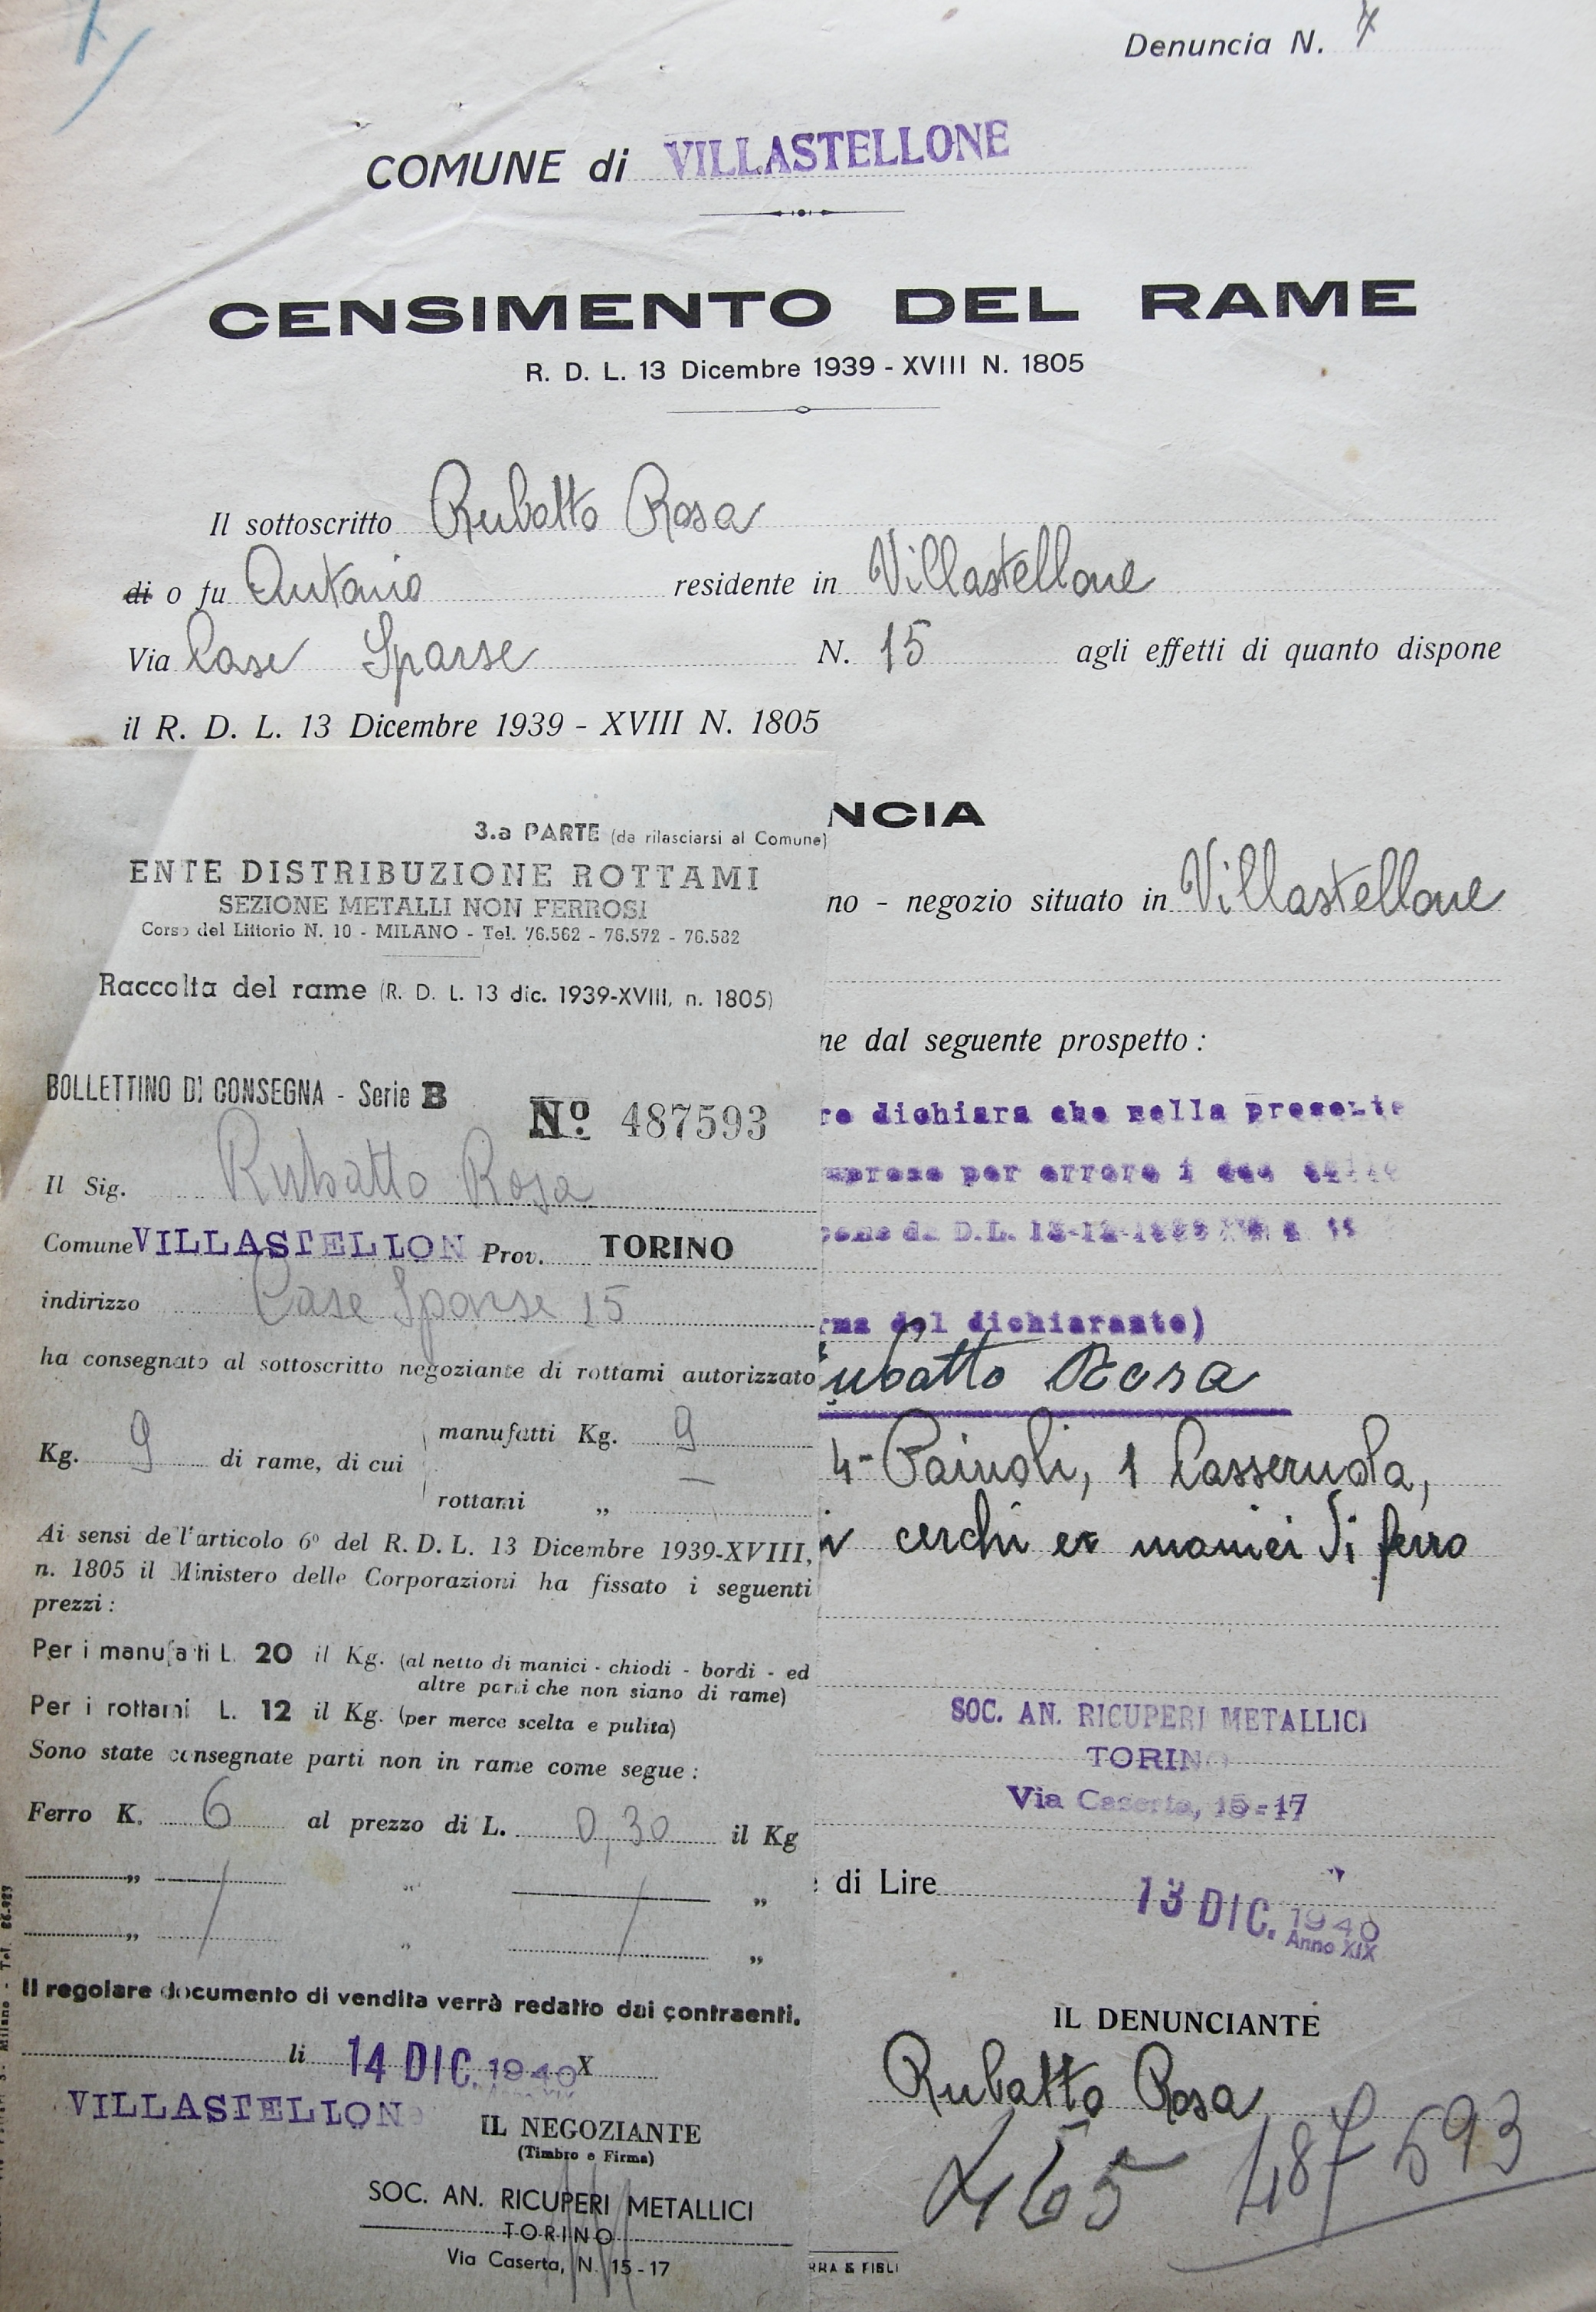 Denuncia N. 4
COMUNE di VILLASTELLONE
CENSIMENTO DEL RAME
R. D. L. 13 Dicembre 1939 - XVIII N. 1805
Il sottoscritto Rubatto Rosa
di o fu Antonio residente in Villastellone
Via Case Sparse N. 15 agli effetti di quanto dispone
il R. D. L. 13 Dicembre 1939 - XVIII N. 1805
NCIA
no - negozio situato in Villastellone
ne dal seguente prospetto :
re dichiara che nella presente
mprese per errore i due
D.L. 13-12-1939
rma del dichiarante)
ubatto Rosa
4 - Paiuoli, 1 Casseruola,
cerchi e manici di ferro
SOC. AN. RICUPERI METALLICI
TORINO
Via Caserta, 15-17
di Lire
13 DIC. 1940
Anno XIX
IL DENUNCIANTE
Rubatto Rosa
465 487593
RRA & FIGLI
3.a PARTE (da rilasciarsi al Comune)
ENTE DISTRIBUZIONE ROTTAMI
SEZIONE METALLI NON FERROSI
Corso del Littorio N. 10 - MILANO - Tel. 76.562 - 76.572 - 76.582
Raccolta del rame (R. D. L. 13 dic. 1939-XVIII, n. 1805)
BOLLETTINO DI CONSEGNA - Serie B
No. 487593
Il Sig. Rubatto Rosa
Comune VILLASTELLON Prov. TORINO
indirizzo Case Sparse 15
ha consegnato al sottoscritto negoziante di rottami autorizzato
Kg. 9 di rame, di cui
manufatti Kg. 9
rottami „ —
Ai sensi de l'articolo 6º del R. D. L. 13 Dicembre 1939-XVIII,
n. 1805 il Ministero delle Corporazioni ha fissato i seguenti
prezzi :
Per i manufatti L. 20 il Kg. (al netto di manici - chiodi - bordi - ed
altre parti che non siano di rame)
Per i rottami L. 12 il Kg. (per merce scelta e pulita)
Sono state consegnate parti non in rame come segue :
Ferro K. 6 al prezzo di L. 0,30 il Kg
„ „ „
„ „ „
Il regolare documento di vendita verrà redatto dai contraenti.
li 14 DIC. 1940 X
Anno XIX
VILLASTELLON
IL NEGOZIANTE
(Timbro e Firma)
SOC. AN. RICUPERI METALLICI
TORINO
Via Caserta, N. 15 - 17